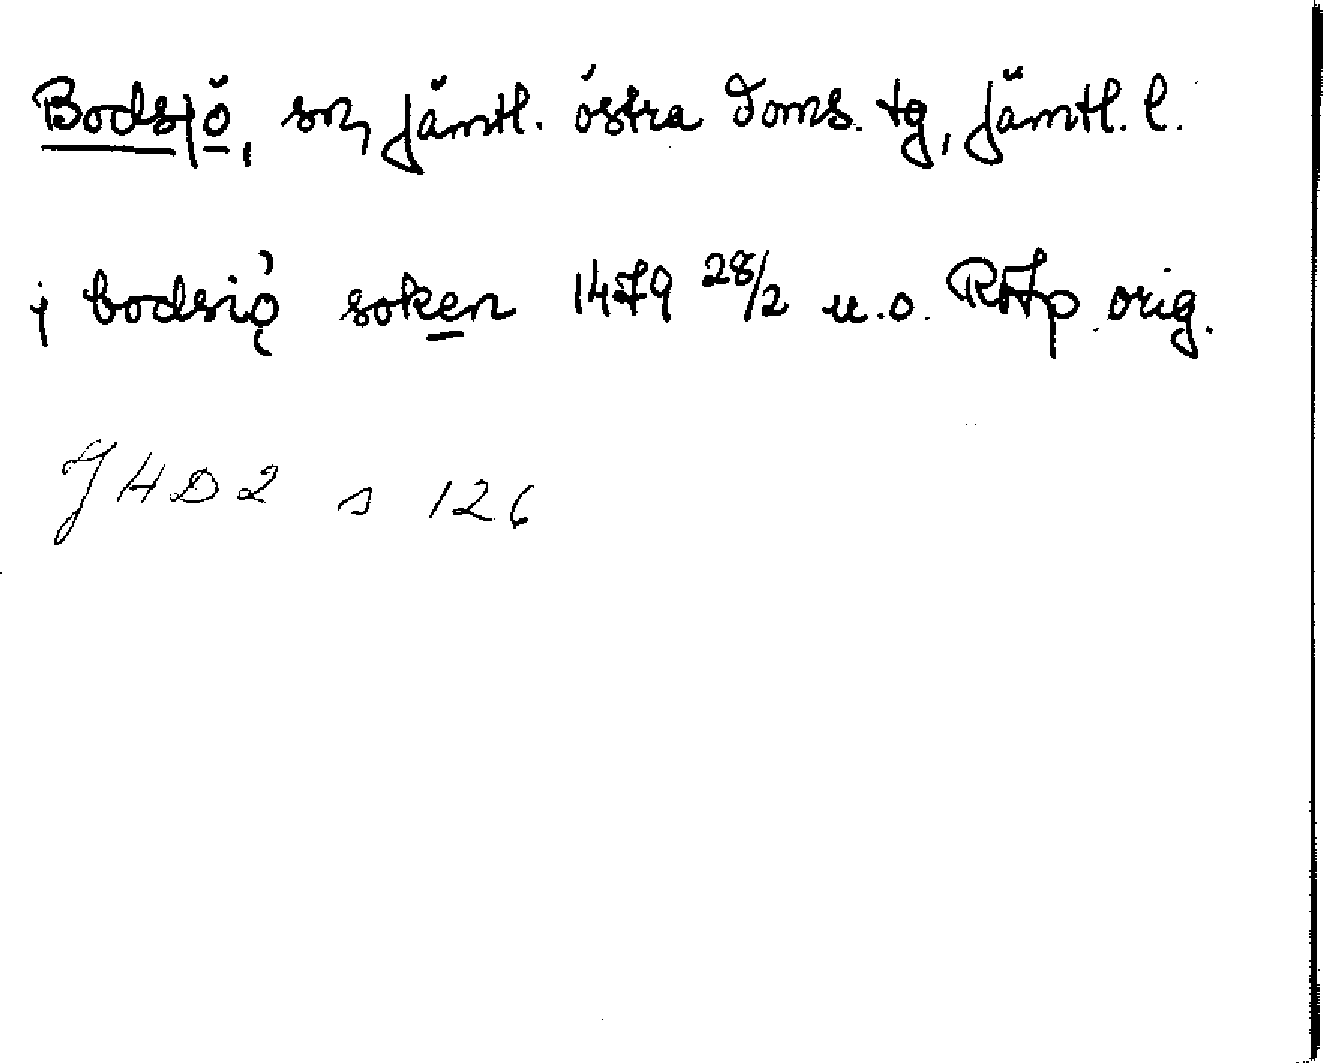 Bodsjö, sn, Jämtl. östra doms. tg, Jämtl. l.
j bodsiǫ́ soken 1479 28/2 u.o. RAp orig.
JHD2 s 126